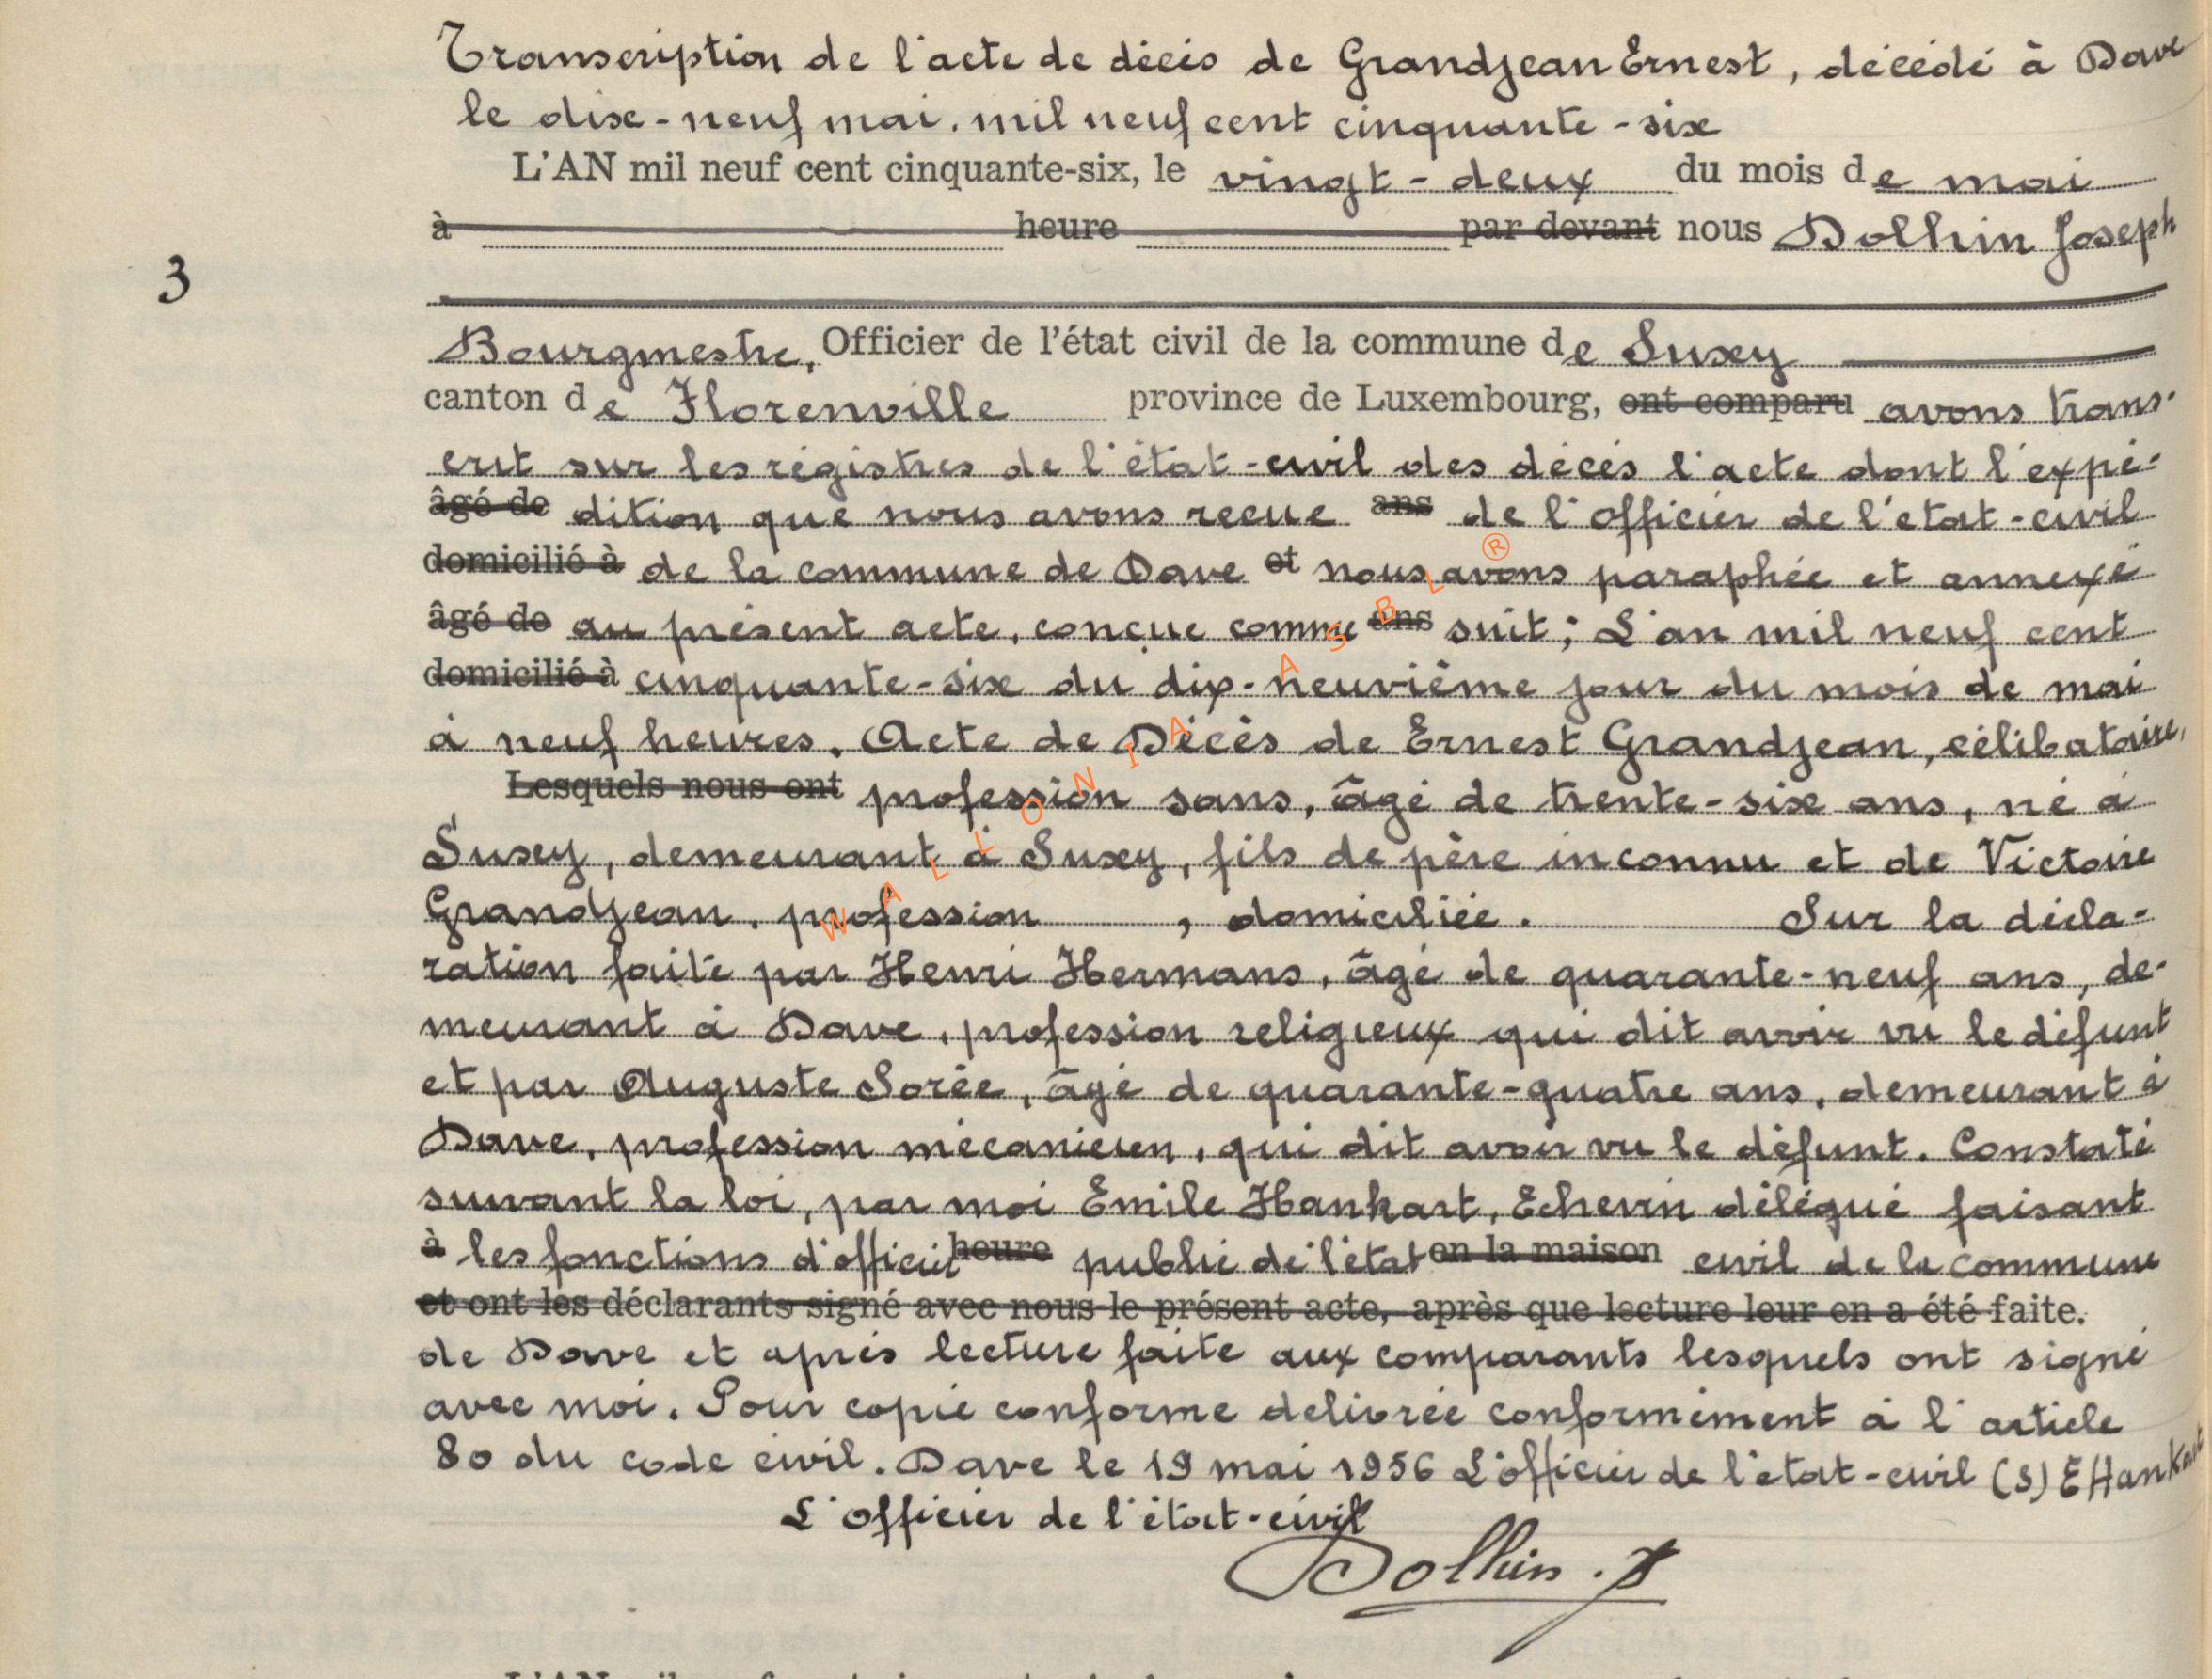 Transcription de l'acte de décès de Grandjean Ernest, décédé à Dave
le dix-neuf mai, mil neuf cent cinquante-six
L'AN mil neuf cent cinquante-six, le vingt-deux du mois de mai
à heure par devant nous Dolhin Joseph
3
Bourgmestre, Officier de l'état civil de la commune de Suxy
canton de Florenville province de Luxembourg, ont comparu avons trans-
crit sur les régistres de l'état-civil des décès l'acte dont l'expé-
âgé de dition que nous avons recue ans de l'officier de l'état-civil
domicilié à de la commune de Dave et nous avons paraphée et annexé
âgé de au présent acte, conçue comme ans suit; L'an mil neuf cent
domicilié à cinquante-six du dix-neuvième jour du mois de mai
à neuf heures. Acte de Décès de Ernest Grandjean, célibataire,
Lesquels nous ont profession sans, âgé de trente-six ans, né à
Suxy, demeurant à Suxy, fils de père inconnu et de Victoire
Grandjean, profession , domiciliée. Sur la décla-
ration faite par Henri Hermans, âgé de quarante-neuf ans, de-
meurant à Dave, profession religieux qui dit avoir vu le défunt
et par Auguste Sorée, âgé de quarante-quatre ans, demeurant à
Dave, profession mécanicien, qui dit avoir vu le défunt. Constaté
suivant la loi, par moi Emile Hankart, Echevin délégué faisant
à les fonctions d'officier heure public de l'état en la maison civil de la commune
et ont les déclarants signé avec nous le présent acte, après que lecture leur en a été faite.
de Dave et après lecture faite aux comparants lesquels ont signé
avec moi. Pour copie conforme delivrée conformément à l'article
80 du code civil. Dave le 19 mai 1956 L'officier de l'état-civil (s) E Hankart
L'officier de l'état-civil
Dolhin. J
WALLONIA ASBL ®